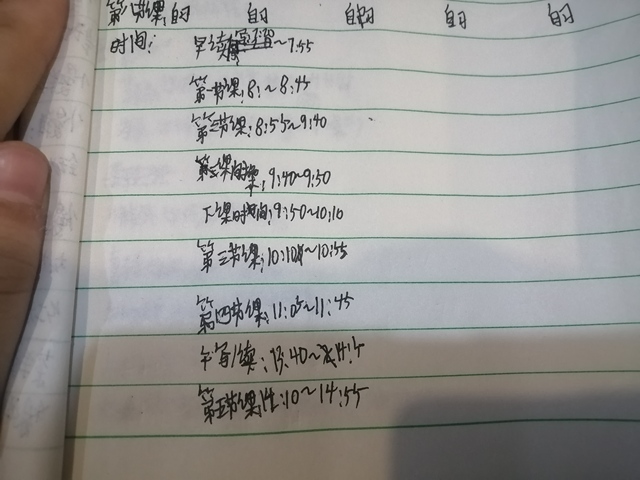 第八节课: 自习 自习 自习 自习 自习
时间: 早读 ~7:55
第一节课: 8: ~ 8:45
第二节课: 8:55~9:40
课间操: 9:40~9:50
下课时间: 9:50~10:10
第三节课: 10:10~10:55
第四节课: 11:05~11:45
午写/读: 13:40~
第五节课: 14:10~14:55